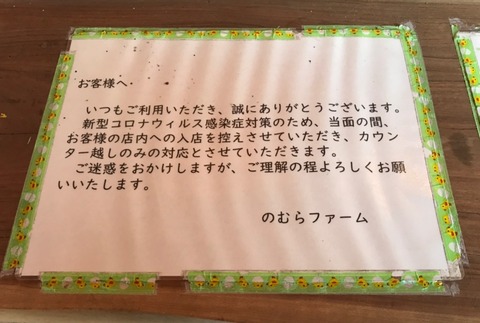 お客様へ
いつもご利用いただき、誠にありがとうございます。
新型コロナウィルス感染症対策のため、当面の間、
お客様の店内への入店を控えさせていただき、カウン
ター越しのみの対応とさせていただきます。
ご迷惑をおかけしますが、ご理解の程よろしくお願
いいたします。
のむらファーム